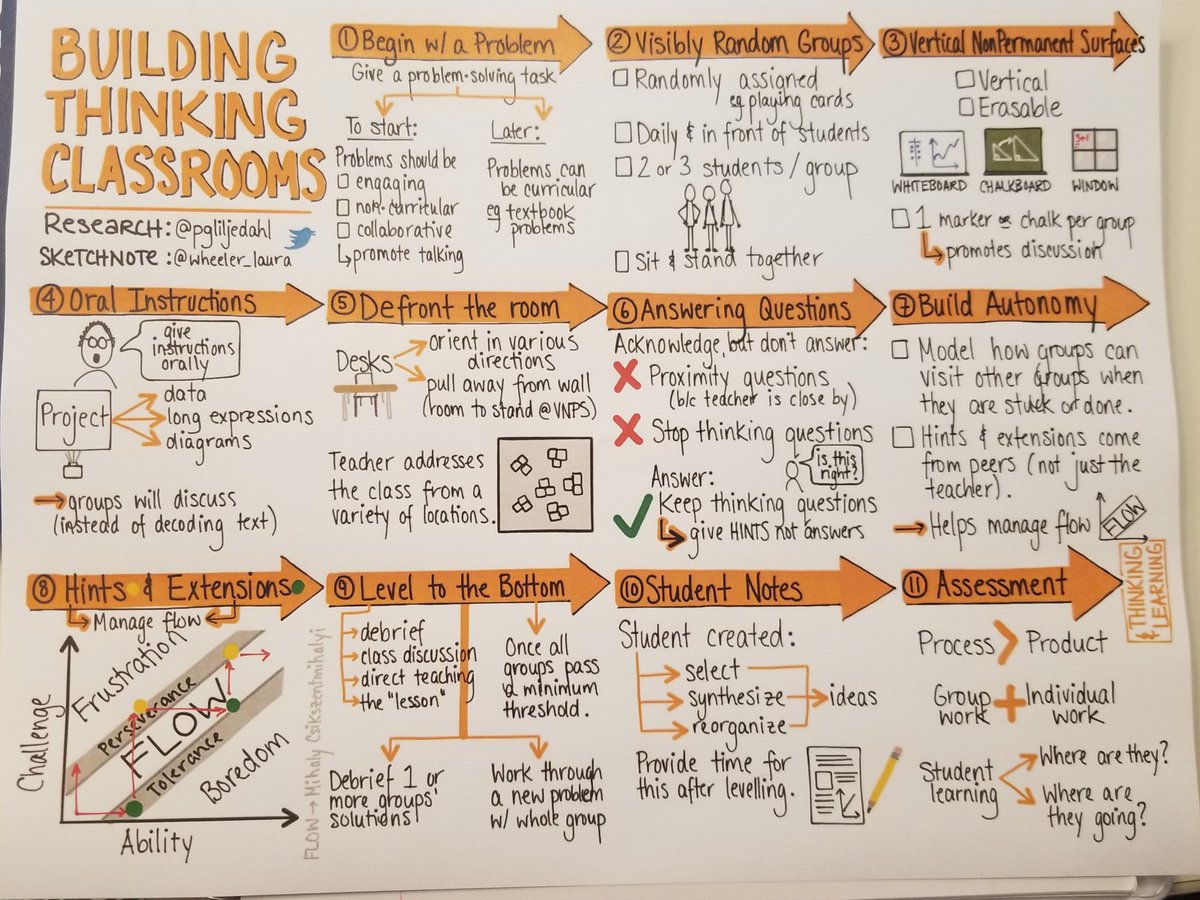 BUILDING
THINKING
CLASSROOMS
RESEARCH: @pgliljedahl
SKETCHNOTE: @wheeler_laura
① Begin w/ a Problem
Give a problem-solving task
To start:
Problems should be
engaging
non-curricular
collaborative
promote talking
Later:
Problems can
be curricular
eg textbook
problems
② Visibly Random Groups
Randomly assigned
eg playing cards
Daily & in front of students
2 or 3 students / group
Sit & stand together
③ Vertical NonPermanent Surfaces
Vertical
Erasable
WHITEBOARD
CHALKBOARD
WINDOW
1 marker or chalk per group
promotes discussion
④ Oral Instructions
give
instructions
orally
Project
data
long expressions
diagrams
groups will discuss
(instead of decoding text)
⑤ Defront the room
Desks
orient in various
directions
pull away from wall
(room to stand @ VNPS)
Teacher addresses
the class from a
variety of locations.
⑥ Answering Questions
Acknowledge, but don't answer:
Proximity questions
(b/c teacher is close by)
Stop thinking questions
is this
right?
Answer:
Keep thinking questions
give HINTS not answers
⑦ Build Autonomy
Model how groups can
visit other groups when
they are stuck or done.
Hints & extensions come
from peers (not just the
teacher).
Helps manage flow
FLOW
⑧ Hints & Extensions
Manage flow
Challenge
Frustration
Perseverance
FLOW
Tolerance
Boredom
Ability
FLOW → Mihaly Csikszentmihalyi
⑨ Level to the Bottom
debrief
class discussion
direct teaching
the "lesson"
Once all
groups pass
a minimum
threshold.
Debrief 1 or
more groups'
solutions
Work through
a new problem
w/ whole group
⑩ Student Notes
Student created:
select
synthesize
reorganize
ideas
Provide time for
this after levelling.
⑪ Assessment
THINKING
& LEARNING
Process > Product
Group
work
+
Individual
work
Student
learning
Where are they?
Where are
they going?